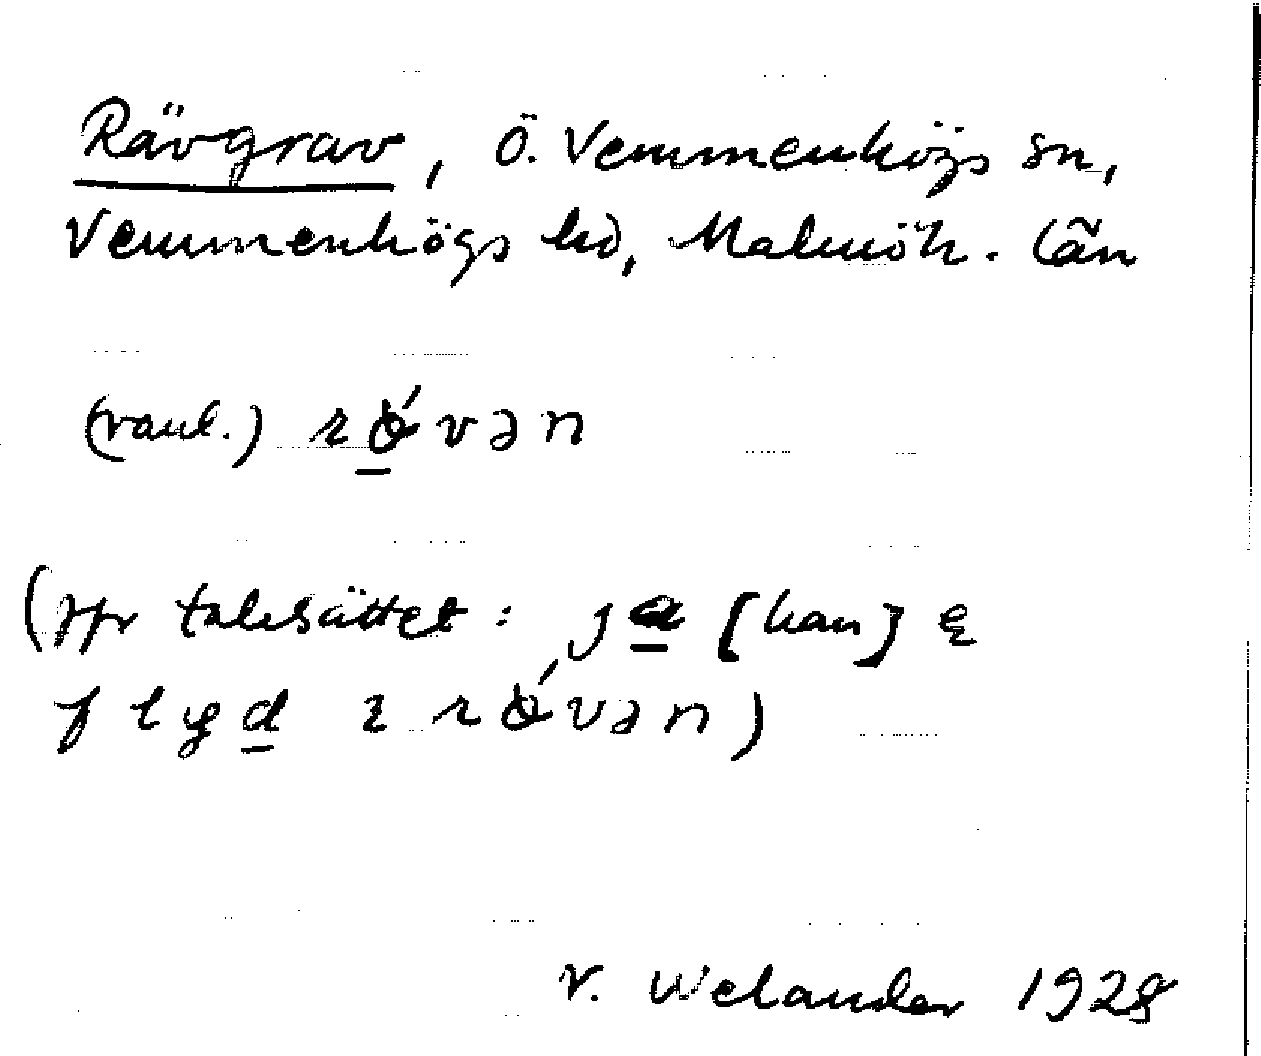 Rävgrav, Ö. Vemmenhögs sn,
Vemmenhögs hd, Malmöh. län
(vanl.) rǿvən
(jfr talesättet: ja [han] ę
flyd ı rǿvən)
V. Welander 1928